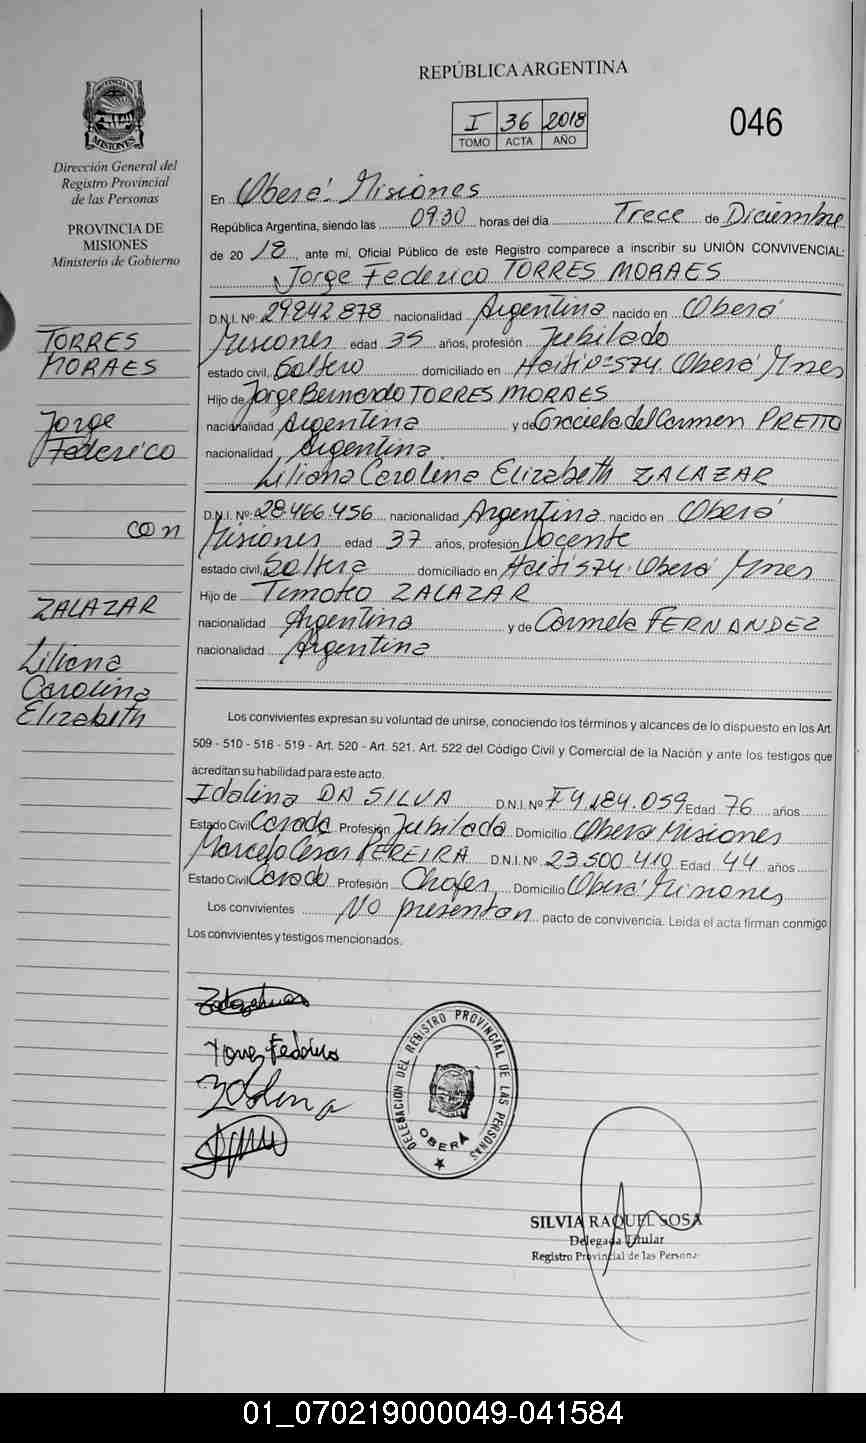 REPÚBLICA ARGENTINA
I 36 2018
TOMO ACTA AÑO
046
PROVINCIA DE MISIONES
Dirección General del
Registro Provincial
de las Personas
PROVINCIA DE
MISIONES
Ministerio de Gobierno
En Oberá - Misiones
República Argentina, siendo las 09:30 horas del día Trece de Diciembre
de 2018, ante mí, Oficial Público de este Registro comparece a inscribir su UNIÓN CONVIVENCIAL:
Jorge Federico TORRES MORAES
D.N.I. Nº 29.842.878 nacionalidad Argentina nacido en Oberá
Misiones edad 35 años, profesión Jubilado
estado civil Soltero domiciliado en Haití nº 574. Oberá Mnes
Hijo de Jorge Bernardo TORRES MORAES
nacionalidad Argentina y de Graciela del Carmen PRETTO
nacionalidad Argentina
Liliana Carolina Elizabeth ZALAZAR
D.N.I. Nº 28.466.456 nacionalidad Argentina nacido en Oberá
Misiones edad 37 años, profesión Docente
estado civil Soltera domiciliado en Haití 574. Oberá Mnes
Hijo de Timoteo ZALAZAR
nacionalidad Argentina y de Carmela FERNANDEZ
nacionalidad Argentina
TORRES
MORAES
Jorge
Federico
con
ZALAZAR
Liliana
Carolina
Elizabeth
Los convivientes expresan su voluntad de unirse, conociendo los términos y alcances de lo dispuesto en los Art.
509 - 510 - 518 - 519 - Art. 520 - Art. 521. Art. 522 del Código Civil y Comercial de la Nación y ante los testigos que
acreditan su habilidad para este acto.
Idalina DA SILVA D.N.I. Nº F4.184.059 Edad 76 años
Estado Civil Casada Profesión Jubilada Domicilio Oberá Misiones
Marcelo Cesar PEREIRA D.N.I. Nº 23.500.410 Edad 44 años
Estado Civil Casado Profesión Chofer Domicilio Oberá Misiones
Los convivientes No presentan pacto de convivencia. Leida el acta firman conmigo
Los convivientes y testigos mencionados.
Torres Federico
DELEGACION DEL REGISTRO PROVINCIAL DE LAS PERSONAS
OBERÁ
SILVIA RAQUEL SOSA
Delegada Titular
Registro Provincial de las Personas
01_070219000049-041584